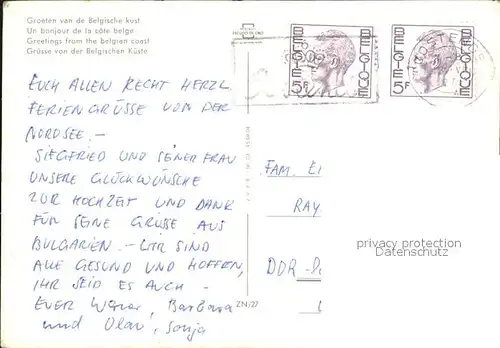 Groeten van de Belgische kust
Un bonjour de la côte belge
Greetings from the belgien coast
Grüsse von der Belgischen Küste
BELGIE BELGIQUE
5F
BELGIE BELGIQUE
5F
EUCH ALLEN RECHT HERZL.
FERIENGRÜSSE VON DER
NORDSEE. –
SIEGFRIED UND SEINER FRAU
UNSERE GLÜCKWÜNSCHE
ZUR HOCHZEIT UND DANK
FÜR SEINE GRÜSSE AUS
BULGARIEN. – WIR SIND
ALLE GESUND UND HOFFEN,
IHR SEID ES AUCH –
EUER Werner, Barbara
und Olav, Sonja
ZN/27
FAM. E
RAY
DDR -
privacy protection
Datenschutz